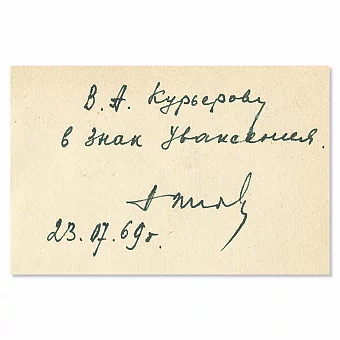 В. А. Курьерову
в знак Уважения.
23.07.69г.